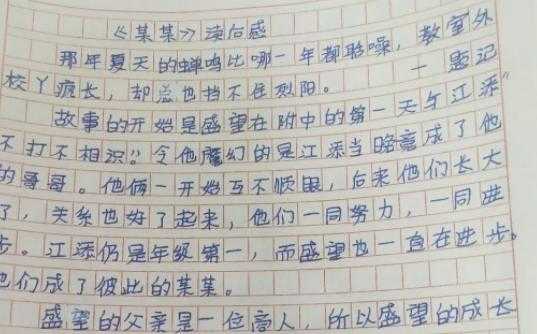 《某某》读后感
那年夏天的蝉鸣比哪一年都聒噪，教室外
枝丫疯长，却总也挡不住烈阳。 — 题记
故事的开始是盛望在附中的第一天与江添"
不打不相识"。令他魔幻的是江添当晚竟成了他
的哥哥。他俩一开始互不顺眼，后来他们长大
了，关系也好了起来，他们一同努力，一同进
步。江添仍是年级第一，而盛望也一直在进步。
他们成了彼此的某某。
盛望的父亲是一位商人，所以盛望的成长